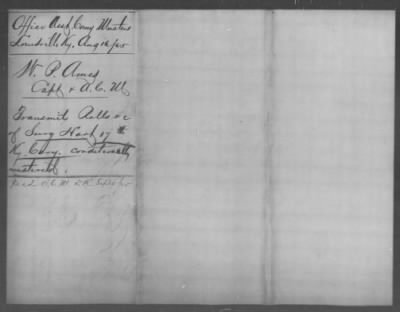 Office Asst. Comy Musters
Louisville Ky. Aug 16/65
W. P. Ames
Capt & A. C. M
Transmits Rolls &c
of Surg Hart 17 th
Ky Cavy. conditionally
mustered.
Rec'd